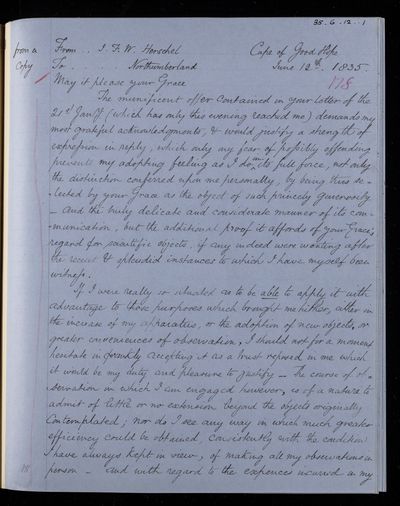 35.6.12..1
from a From .. J. F. W. Herschel Cape of Good Hope
Copy To . . . . Northumberland June 12th 1835.
May it please your Grace
The munificent offer contained in your letter of the
21st Jany (which has only this evening reached me) demands my
most grateful acknowledgments, & would justify a strength of
expression in reply, which only my fear of possibly offending
prevents my adopting feeling as I do, in its full force, not only
the distinction conferred upon me personally, by being thus se-
-lected by your Grace as the object of such princely generosity
- and the truly delicate and considerate manner of its com-
-munication, but the additional proof it affords of your Grace's
regard for scientific objects, if any indeed were wanting after
the recent & splendid instances to which I have myself been
witness.
If I were really so situated as to be able to apply it with
advantage to those purposes which brought me hither, either in
the increase of my apparatus, or the adoption of new objects, or
greater conveniences of observation, I should not for a moment
hesitate in frankly accepting it as a trust reposed in me which
it would be my duty and pleasure to justify - The course of ob-
-servation in which I am engaged however, is of a nature to
admit of little or no extension beyond the objects originally
contemplated; nor do I see any way in which much greater
efficiency could be obtained consistently with the condition
I have always kept in view, of making all my observations in
person - and with regard to the expences incurred in my